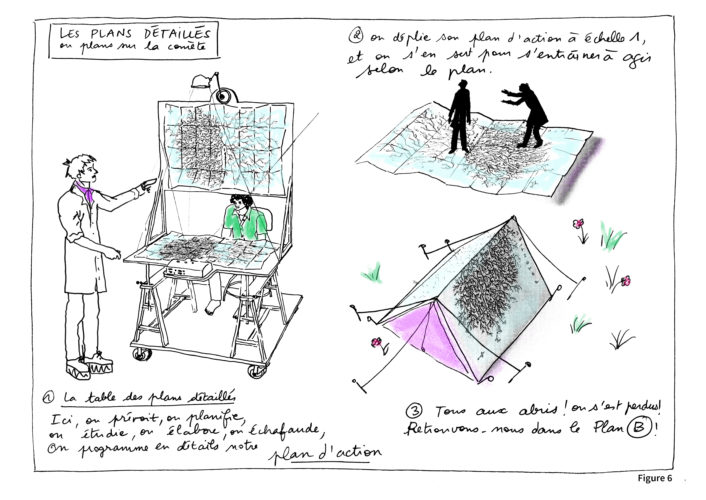 LES PLANS DÉTAILLÉS
ou plans sur la comète
② on déplie son plan d'action à échelle 1,
et on s'en sert pour s'entraîner à agir
selon le plan.
① La table des plans détaillés
Ici, on prévoit, on planifie,
on étudie, on élabore, on échafaude,
On programme en détails notre
plan d'action
③ Tous aux abris ! on s'est perdus !
Retrouvons-nous dans le Plan B !
Figure 6